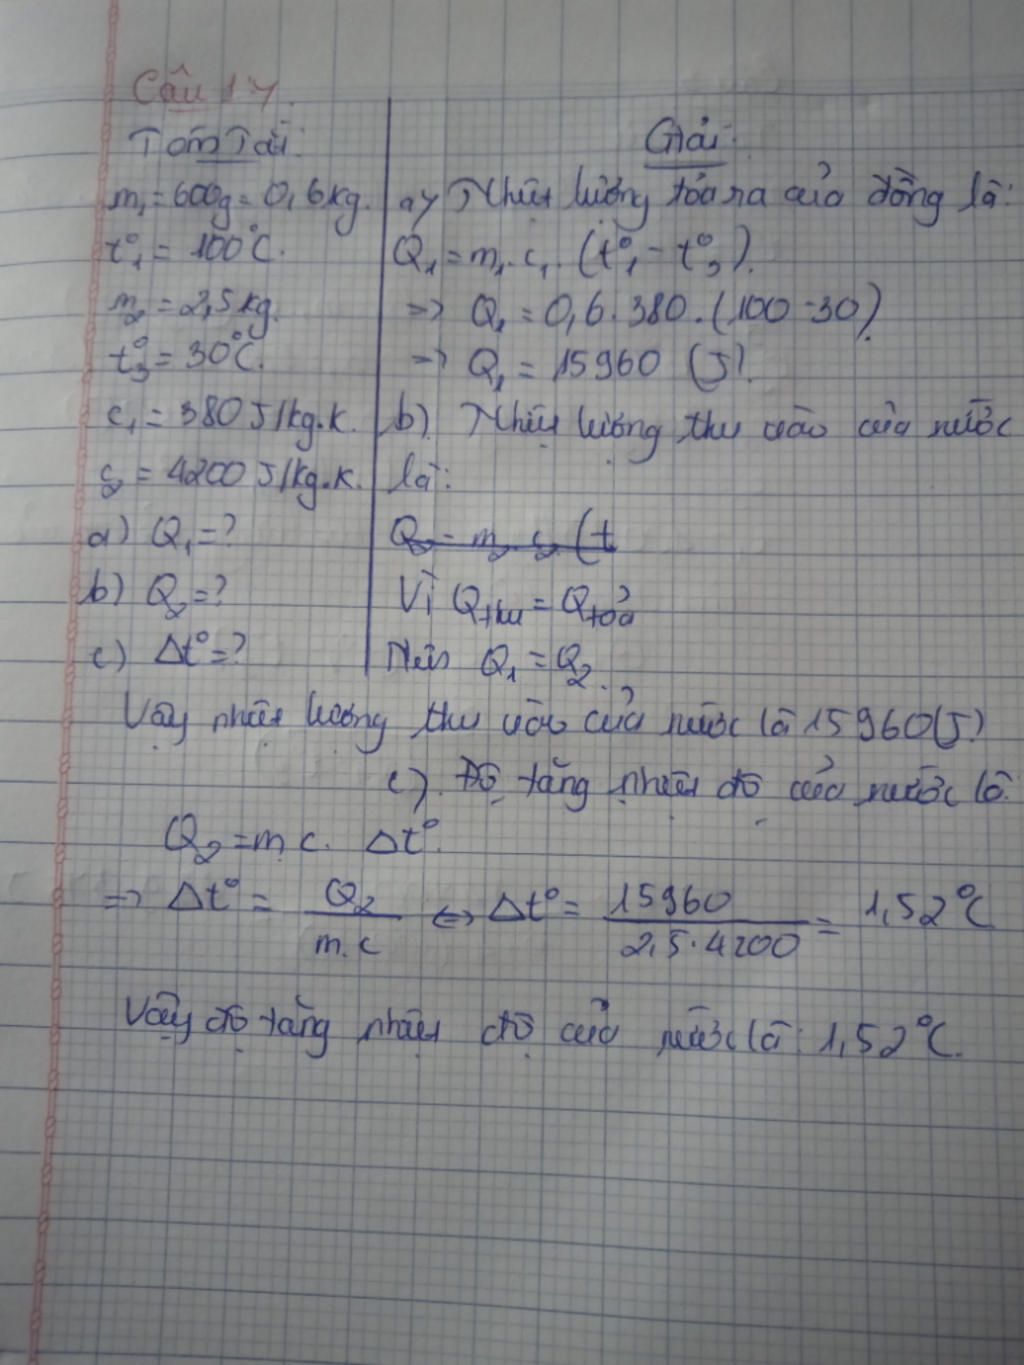 Câu 17.
Tóm Tắt:
m₁ = 600g = 0,6kg.
t°₁ = 100°C.
m₂ = 2,5kg.
t°₃ = 30°C.
c₁ = 380 J/kg.k.
c₂ = 4200 J/kg.k.
a) Q₁ = ?
b) Q₂ = ?
c) Δt° = ?
Giải:
a) Nhiệt lượng tỏa ra của đồng là:
Q₁ = m₁. c₁. (t°₁ - t°₃).
=> Q₁ = 0,6. 380. (100 - 30)
=> Q₁ = 15960 (J).
b) Nhiệt lượng thu vào của nước
là:
Q₂ = m₂. c₂. (t
Vì Qthu = Qtỏa
Nên Q₁ = Q₂.
Vậy nhiệt lượng thu vào của nước là 15960(J)
c). Độ tăng nhiệt độ của nước là:
Q₂ = m. c. Δt°.
=> Δt° = Q₂ / m.c <=> Δt° = 15960 / 2,5.4200 = 1,52°C
Vậy độ tăng nhiệt độ của nước là: 1,52°C.